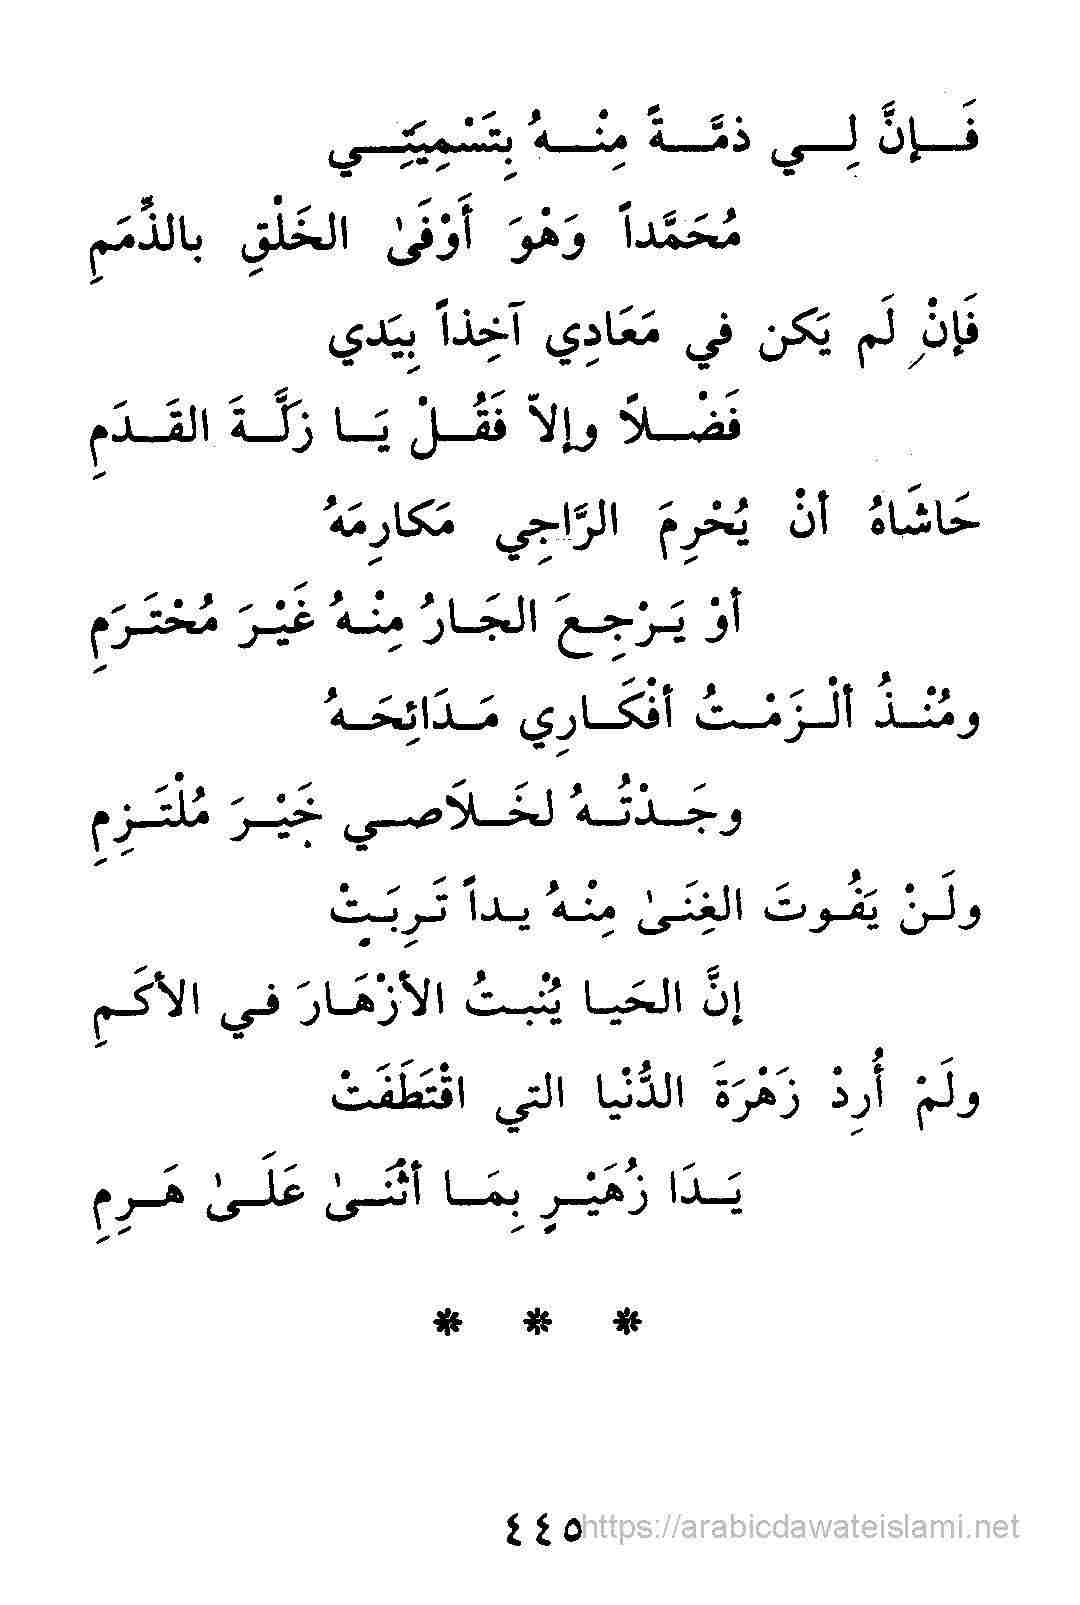 فَإنَّ لِي ذمَّةً مِنْهُ بِتَسْمِيَتِي
مُحَمَّداً وَهْوَ أَوْفَىٰ الخَلْقِ بالذِّمَمِ
فَإنْ لَم يَكن في مَعَادِي آخِذاً بِيَدي
فَضْلاً وإلاّ فَقُلْ يَا زلَّةَ القَدَمِ
حَاشَاهُ أنْ يُحْرِمَ الرَّاجِي مَكارِمَهُ
أوْ يَرْجِعَ الجَارُ مِنْهُ غَيْرَ مُحْتَرَمِ
ومُنْذُ ألْزَمْتُ أفْكَارِي مَدَائِحَهُ
وجَدْتُهُ لخَلاَصي خَيْرَ مُلْتَزِمِ
ولَنْ يَفُوتَ الغِنَىٰ مِنْهُ يداً تَرِبَتْ
إنَّ الحَيا يُنْبتُ الأزْهَارَ في الأكَمِ
ولَمْ أُرِدْ زَهْرَةَ الدُّنْيا التي اقْتَطَفَتْ
يَدَا زُهَيْرٍ بِمَا أثْنَىٰ عَلَىٰ هَرِمِ
* * *
٤٤٥
https://arabicdawateislami.net